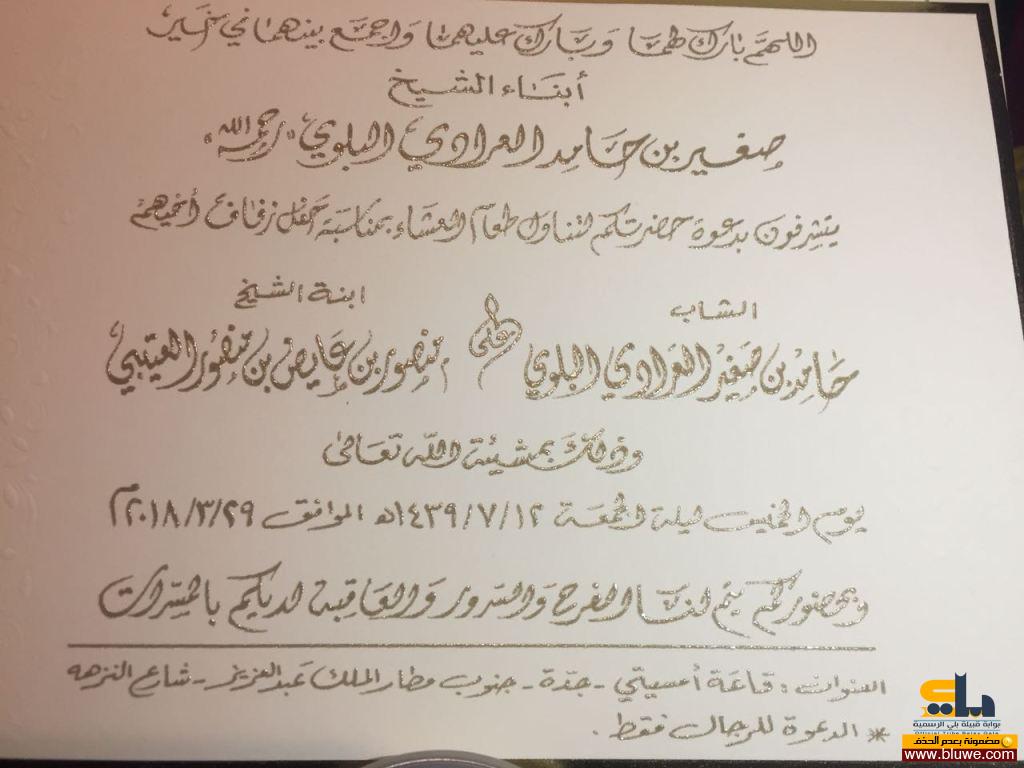 اللهم بارك لهما وبارك عليهما واجمع بينهما في خير
أبناء الشيخ
صغير بن حامد العرادي البلوي "رحمه الله"
يتشرفون بدعوة حضرتكم لتناول طعام العشاء بمناسبة حفل زفاف أخيهم
الشاب
ابنة الشيخ
حامد بن صغير العرادي البلوي على منصور بن عايض بن منصور العتيبي
وذلك بمشيئة الله تعالى
يوم الخميس ليلة الجمعة ١٤٣٩/٧/١٢هـ الموافق ٢٠١٨/٣/٢٩م
وبحضوركم يتم لنا الفرح والسرور والعاقبة لديكم بالمسرات
العنوان : قاعة أمسيتي - جدة - جنوب مطار الملك عبدالعزيز - شارع النزهه
* الدعوة للرجال فقط .
بلي
بوابة قبيلة بلي الرسمية
مضمونة بعدم الحذف
www.bluwe.com